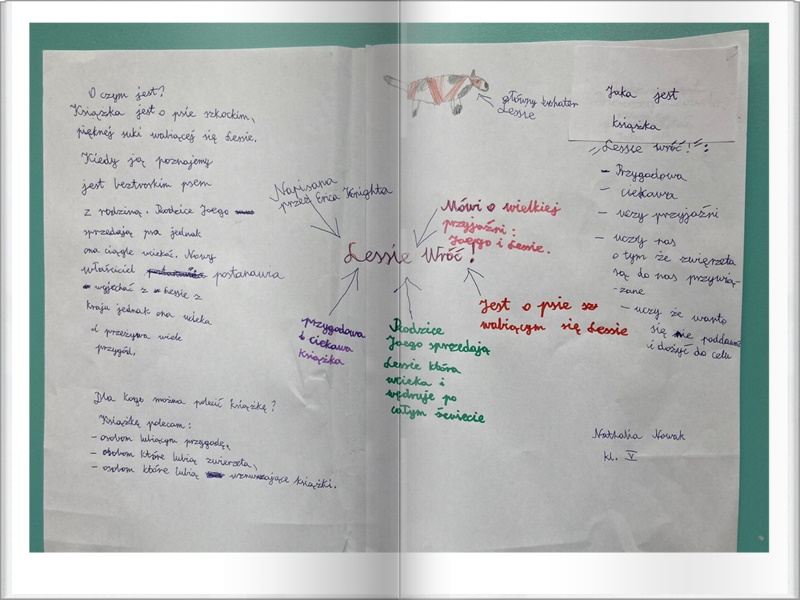 O czym jest?
Książka jest o psie szkockim,
pięknej suki wabiącej się Lessie.
Kiedy ją poznajemy
jest beztroskim psem
z rodziną. Rodzice Joego
sprzedają psa jednak
ona ciągle ucieka. Nowy
właściciel postanawia
wyjechać z Lessie z
kraju jednak ona ucieka
i przeżywa wiele
przygód.
Dla kogo można polecić książkę?
Książkę polecam:
- osobom lubiącym przygodę,
- osobom które lubią zwierzęta,
- osobom które lubią wzruszające książki.
główny bohater
Lessie
Napisana
przez Erica Knighta
Mówi o wielkiej
przyjaźni:
Joego i Lessie.
Lessie Wróć!
przygodowa
i ciekawa
książka
Rodzice
Joego sprzedają
Lessie która
ucieka i
wędruje po
całym świecie
Jest o psie
wabiącym się Lessie
Jaka jest
książka
"Lessie wróć!":
- Przygodowa
- ciekawa
- uczy przyjaźni
- uczy nas
o tym że zwierzęta
są do nas przywią-
zane
- uczy że warto
się nie poddawać
i dążyć do celu
Nathalia Nowak
kl. V